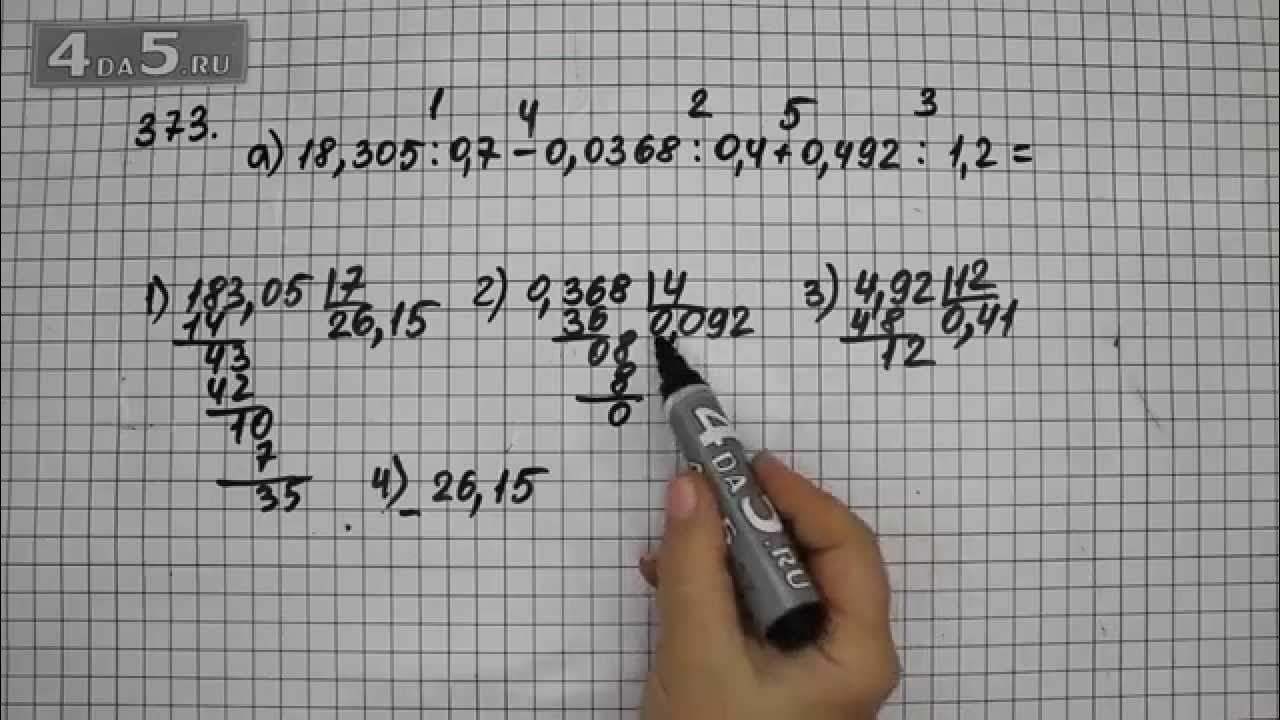 4DA5.RU
1 4 2 5 3
373.
а) 18,305 : 0,7 - 0,0368 : 0,4 + 0,492 : 1,2 =
1) 183,05 | 7
14
26,15
43
42
10
7
35
2) 0,368 | 4
36
0,092
08
8
0
3) 4,92 | 12
48
0,41
12
4) - 26,15
4DA5.RU